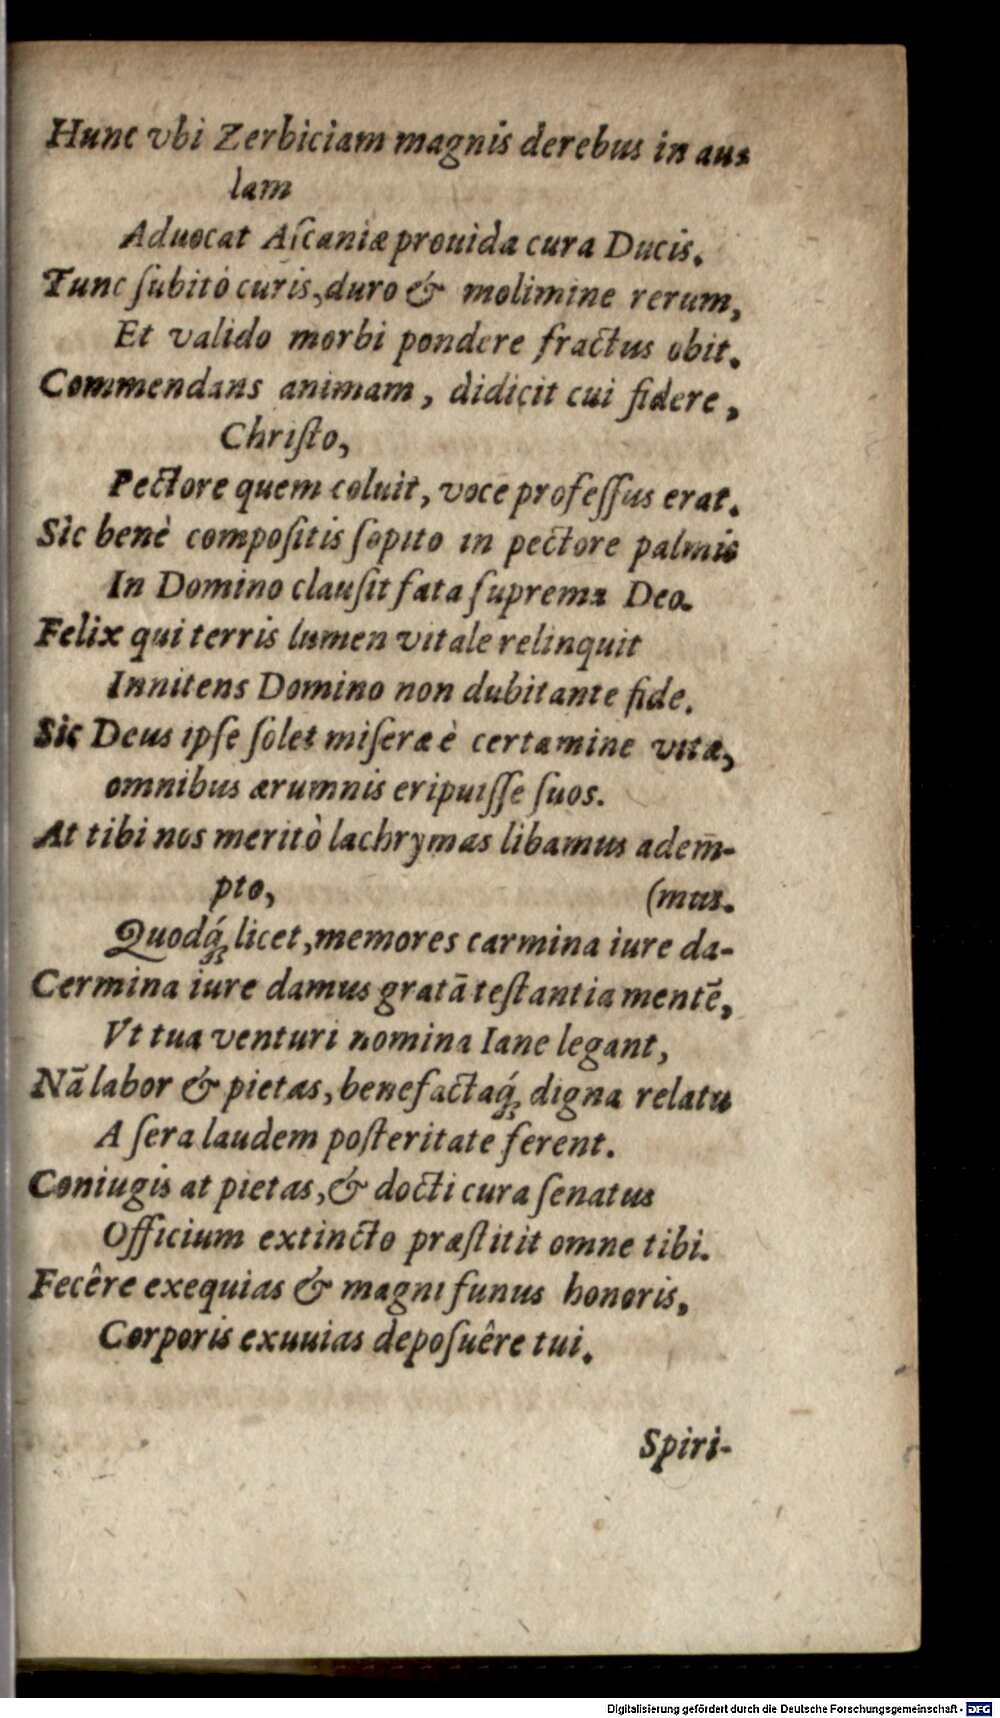 Hunc vbi Zerbiciam magnis derebus in au-
lam
Aduocat Aſcaniæ prouida cura Ducis.
Tunc ſubitò curis, duro & molimine rerum,
Et valido morbi pondere fractus obit.
Commendans animam, didicit cui fidere,
Chriſto,
Pectore quem coluit, voce profeſſus erat.
Sic benè compoſitis ſopito in pectore palmis
In Domino clauſit fata ſuprema Deo.
Felix qui terris lumen vitale relinquit
Innitens Domino non dubitante fide.
Sic Deus ipſe ſolet miſeræ è certamine vitæ,
omnibus ærumnis eripuiſſe ſuos.
At tibi nos meritò lachrymas libamus adem̄-
pto, (mus.
Quodq́ꝫ licet, memores carmina iure da-
Cermina iure damus gratā teſtantia mentē,
Vt tua venturi nomina Iane legant,
Nā labor & pietas, benefactaq́ꝫ digna relatu
A ſera laudem poſteritate ferent.
Coniugis at pietas, & docti cura ſenatus
Officium extincto præſtitit omne tibi.
Fecêre exequias & magni funus honoris,
Corporis exuuias depoſuêre tui.
Spiri-
Digitalisierung gefördert durch die Deutsche Forschungsgemeinschaft - DFG